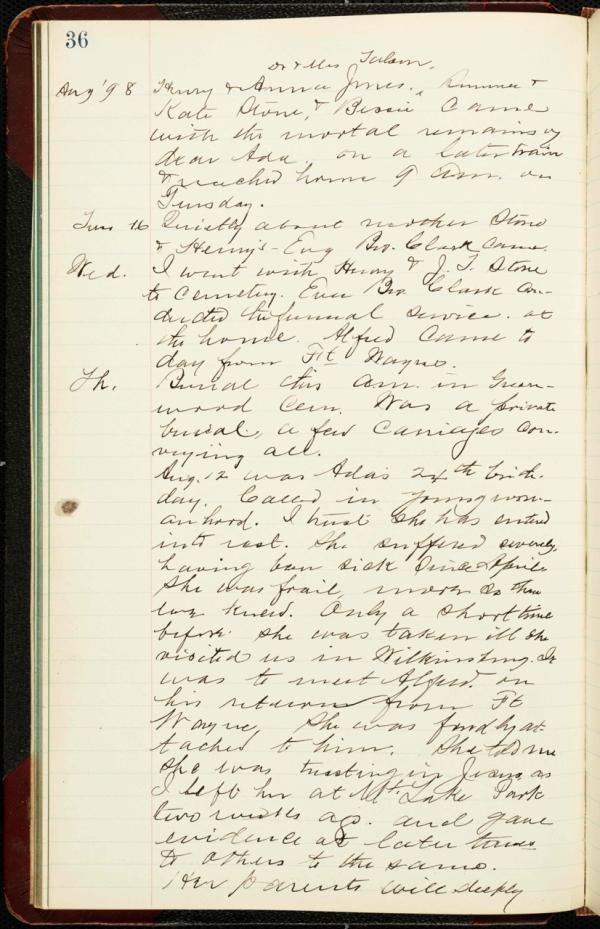 36
Dr & Mrs
Aug '98 Henry & Anna Jones. &
Kate Stone, & Bessie came
with the mortal remains of
dear Ada. on a later train
& reached home 9 am. on
Tuesday.
Tues 16 Quietly about mother Stone
& Henry's - Evg Bro. Clark came.
Wed. I went with Henry & J. T. Stone
to Cemetery. Eve Bro. Clark con-
ducted the funeral service. at
the home. Alfred came to
day from Ft Wayne.
Th. Burial this am. in Green-
wood Cem. Was a private
burial, a few carriages con-
veying all.
Aug. 12 was Ada's 24th birth-
day. Called in young wom-
anhood. I trust she has entered
into rest. She suffered severely,
having been sick since April
She was frail, more so than
we knew. Only a short time
before she was taken ill she
visited us in Wilkinsburg. It
was to meet Alfred. on
his return from Ft
Wayne. She was fondly at-
tached to him. She told me
she was trusting in Jesus as
I left her at Mt. Lake Park
two weeks ago. and gave
evidence at later times
to others to the same.
Her parents will deeply